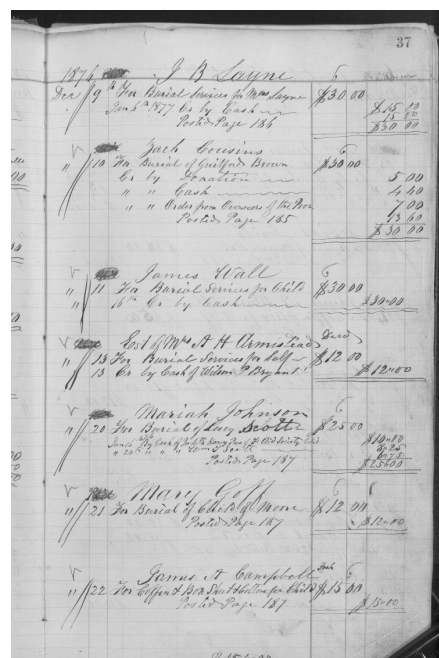 37
1876 J B Layne
Dec 9th For Burial Services for Mrs Layne $30 00
Jan 6th 1877 Cr by Cash $15 00
15 00
Posted Page 186 $30 00
Zach Cousins
" 10 For Burial of Guilford Brown $30 00
Cr by Donation 5 00
" " Cash 4 40
" " Order from Overseers of the Poor 7 00
13 60
Posted Page 185 $30 00
James Wall
" 11 For Burial Services for Child $30 00
16th Cr by Cash $30.00
Est of Mrs A H Armistead Dead
" 13 For Burial Services for Self $12 00
" 13 Cr by Cash of Wilson P Bryant $12.00
Mariah Johnson
" 20 For Burial of Lucy Scott $25 00
by Cash of $10.00
Posted Page 187 $25.00
Mary Goff
" 21 For Burial of Child of Moore $12 00
Posted Page 187 $12.00
James A Campbell
" 22 For Coffin & Box for Child $15 00
Posted Page 187 $15.00